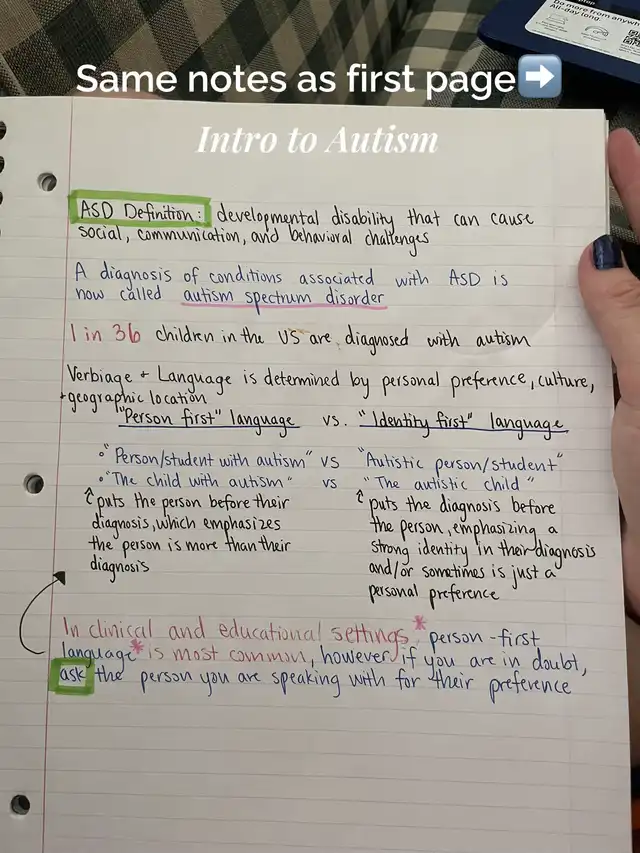 Do more from anywhere
All-day long.
Same notes as first page➡️
Intro to Autism
ASD Definition: developmental disability that can cause
social, communication, and behavioral challenges
A diagnosis of conditions associated with ASD is
now called autism spectrum disorder
1 in 36 children in the US are diagnosed with autism
Verbiage + Language is determined by personal preference, culture,
+ geographic location
"Person first" language vs. "Identity first" language
• "Person/student with autism" vs "Autistic person/student"
• "The child with autism" vs "The autistic child"
↑ puts the person before their
diagnosis, which emphasizes
the person is more than their
diagnosis
↑ puts the diagnosis before
the person, emphasizing a
strong identity in their diagnosis
and/or sometimes is just a
personal preference
In clinical and educational settings* person-first
language* is most common, however if you are in doubt,
ask the person you are speaking with for their preference